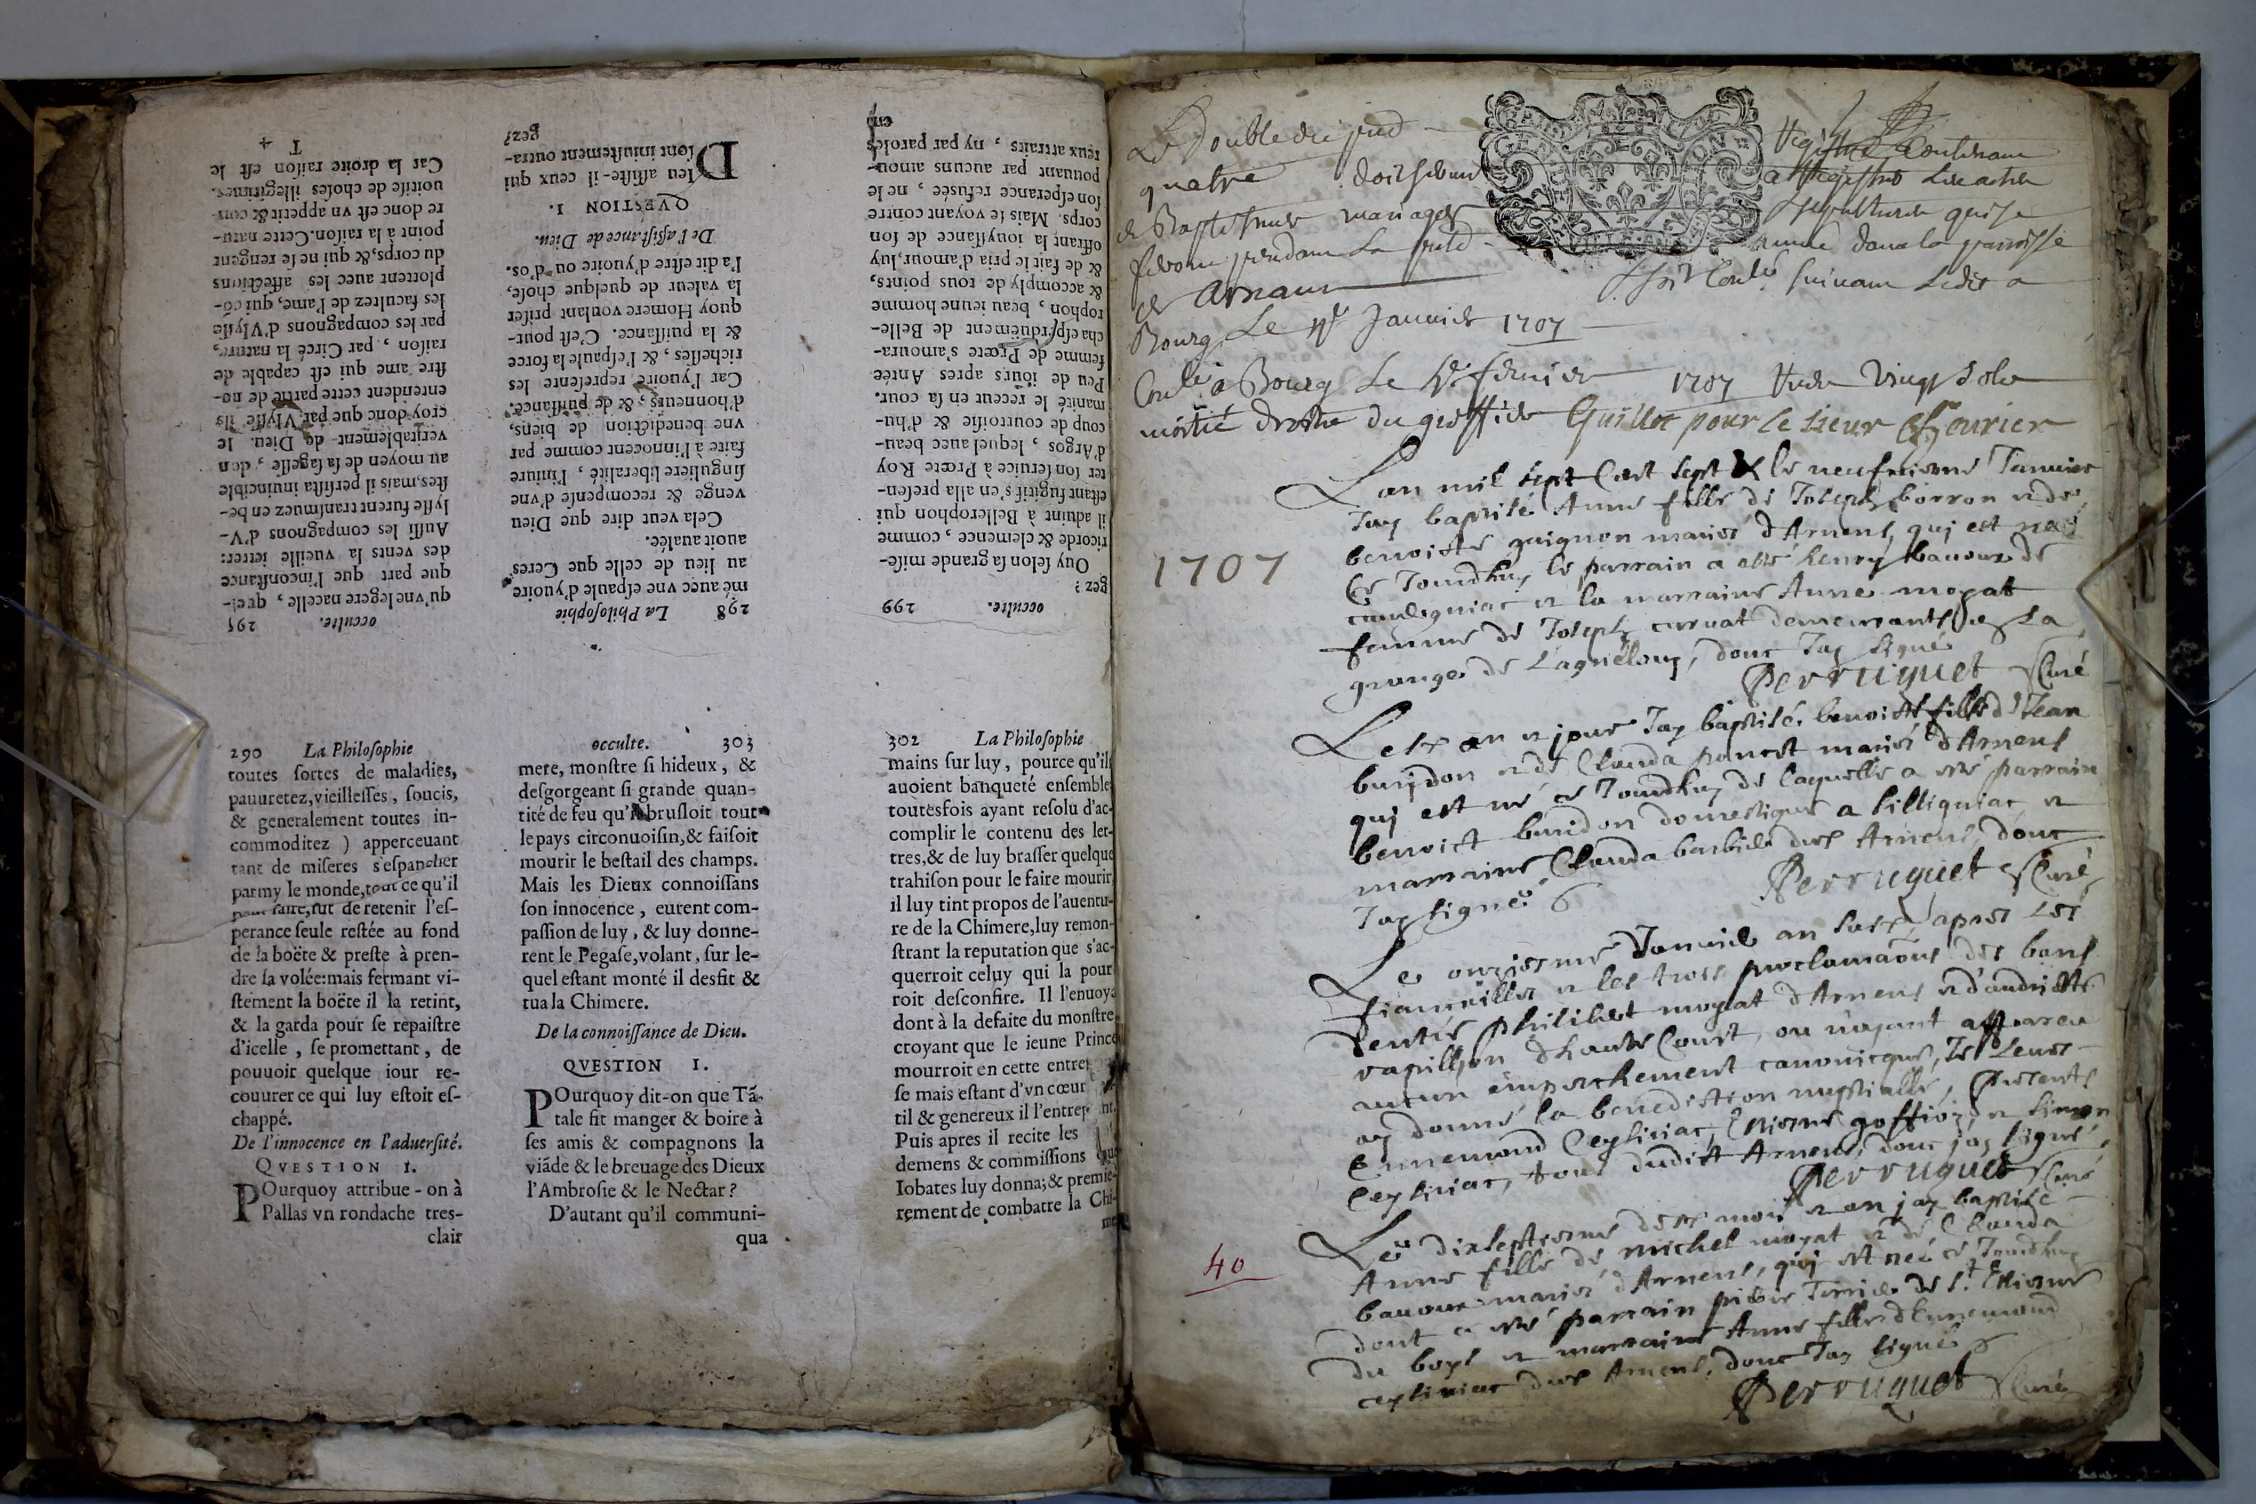 occulte. 295
qu'vne legere nacelle, que,-
que part que l'inconstance
des vents la vueille ietter:
Aussi les compagnons d'V-
lysse furent transmuez en be-
stes, mais il persista inuincible
au moyen de sa sagesse, don
veritablement de Dieu. Ie
croy donc que par Vlysse ils
entendent cette partie de no-
stre ame qui est capable de
raison, par Circé la nature,
par les compagnons d'Vlysse
les facultez de l'ame, qui cõ-
plottent auec les affections
du corps, & qui ne se rengent
point à la raison. Cette natu-
re donc est vn appetit & con-
uoitise de choses illegitimes.
Car la droite raison est le
T 4
298 La Philosophie
mé auec vne espaule d'yuoire
au lieu de celle que Ceres
auoit aualée.
Cela veut dire que Dieu
venge & recompense d'vne
singuliere liberalité, l'iniure
faite à l'innocent comme par
vne benediction de biens,
d'honneurs, & de puissance.
Car l'yuoire represente les
richesses, & l'espaule la force
& la puissance. C'est pour-
quoy Homere voulant priser
la valeur de quelque chose,
l'a dit estre d'yuoire ou d'os.
De l'assistance de Dieu.
QVESTION I.
Dieu assiste-il ceux qui
sont iniustement outra-
gez?
occulte. 299
gez?
Ouy selon sa grande mise-
ricorde & clemence, comme
il aduint à Bellerophon qui
estant fugitif s'en alla presen-
ter son seruice à Prœte Roy
d'Argos, lequel auec beau-
coup de courtoisie & d'hu-
manité le receut en sa cour.
Peu de iours apres Antée
femme de Prœte s'amoura-
cha esperduëment de Belle-
rophon, beau ieune homme
& accomply de tous points,
& de fait le pria d'amour, luy
offrant la iouyssance de son
corps. Mais se voyant contre
son esperance refusée, ne le
pouuant par aucuns amou-
reux attraits, ny par paroles
290 La Philosophie
toutes sortes de maladies,
pauuretez, vieillesses, soucis,
& generalement toutes in-
commoditez ) apperceuant
tant de miseres s'espancher
parmy le monde, tout ce qu'il
peut faire, fut de retenir l'es-
perance seule restée au fond
de la boëte & preste à pren-
dre sa volée: mais fermant vi-
stement la boëte il la retint,
& la garda pour se repaistre
d'icelle, se promettant, de
pouuoir quelque iour re-
couurer ce qui luy estoit es-
chappé.
De l'innocence en l'aduersité.
QVESTION I.
POurquoy attribue-on à
Pallas vn rondache tres-
clair
occulte. 303
mere, monstre si hideux, &
desgorgeant si grande quan-
tité de feu qu'il brusloit tout
le pays circonuoisin, & faisoit
mourir le bestail des champs.
Mais les Dieux connoissans
son innocence, eurent com-
passion de luy, & luy donne-
rent le Pegase, volant, sur le-
quel estant monté il desfit &
tua la Chimere.
De la connoissance de Dieu.
QVESTION I.
POurquoy dit-on que Tã-
tale fit manger & boire à
ses amis & compagnons la
viãde & le breuage des Dieux
l'Ambrosie & le Nectar?
D'autant qu'il communi-
qua
302 La Philosophie
mains sur luy, pource qu'ils
auoient banqueté ensemble
toutesfois ayant resolu d'ac-
complir le contenu des let-
tres, & de luy brasser quelque
trahison pour le faire mourir
il luy tint propos de l'auentu-
re de la Chimere, luy remon-
strant la reputation que s'ac-
querroit celuy qui la pour
roit desconfire. Il l'enuoya
dont à la defaite du monstre
croyant que le ieune Prince
mourroit en cette entre
se mais estant d'vn cœur
til & genereux il l'entrep
Puis apres il recite les
demens & commissions que
Iobates luy donna; & premie-
rement de combatre la Chi-
me
Le Double du pnt Registre Contenant
quatre doit servir a Registrer Les actes
de Baptesmes mariages Sepultures qui se
feront pendant La pnte année dans la parroisse
de Arnans
Bourg Le Janvier 1707
Conlé a Bourg Le fevrier 1707 vingt sols
moitié droits du greffier Guillot pour le sieur Fourier
1707
Lan mil sept Cent sept & le neufviesme Janvier
Jay baptisé Anne fille de Joseph borron et de
benoiste guignon mariés d'Arnens, qui est née
Ce Jourdhuy le parrain a esté henry bavoux de
et la marraine Anne moyat
femme de Joseph demeurants
grange de dont Jay signé
Perruquet Curé
Lesd an et jour Jay baptisé benoist fille d'Jean
buridon et de Clauda poncet mariés d'Arnens
qui est né ce Jourdhuy de laquelle a esté parrain
benoist buridon domestique a silligniac et
marraine Clauda barbier dud Arnens dont
Jay signé
Perruquet Curé
Le onziesme Janvier an susd, apres les
fiancailles et les trois proclamaons des bans
dentre philibert moyat d'Arnens et d'andriette
rapillion d'haute Court, ou nayant appareu
aucun empeschement canonicque, Je Leurs
ay donné la benediction nuptialle, presents
Ennemond Ceyssiriac, Estienne goffioz, et simon
Ceyssiriac, tous dudict Arnens, dont jay signé
Perruquet Curé
40
Le dixseptiesme desd mois et an jay baptisé
Anne fille de michel moyat et de Clauda
bavoux mariés d'Arnens, qui est née ce Jourdhuy
dont a esté parrain de St Estienne
du boys et marraine Anne fille d'Ennemond
ceyssiriac dud Arnens, dont Jay signé
Perruquet Curé